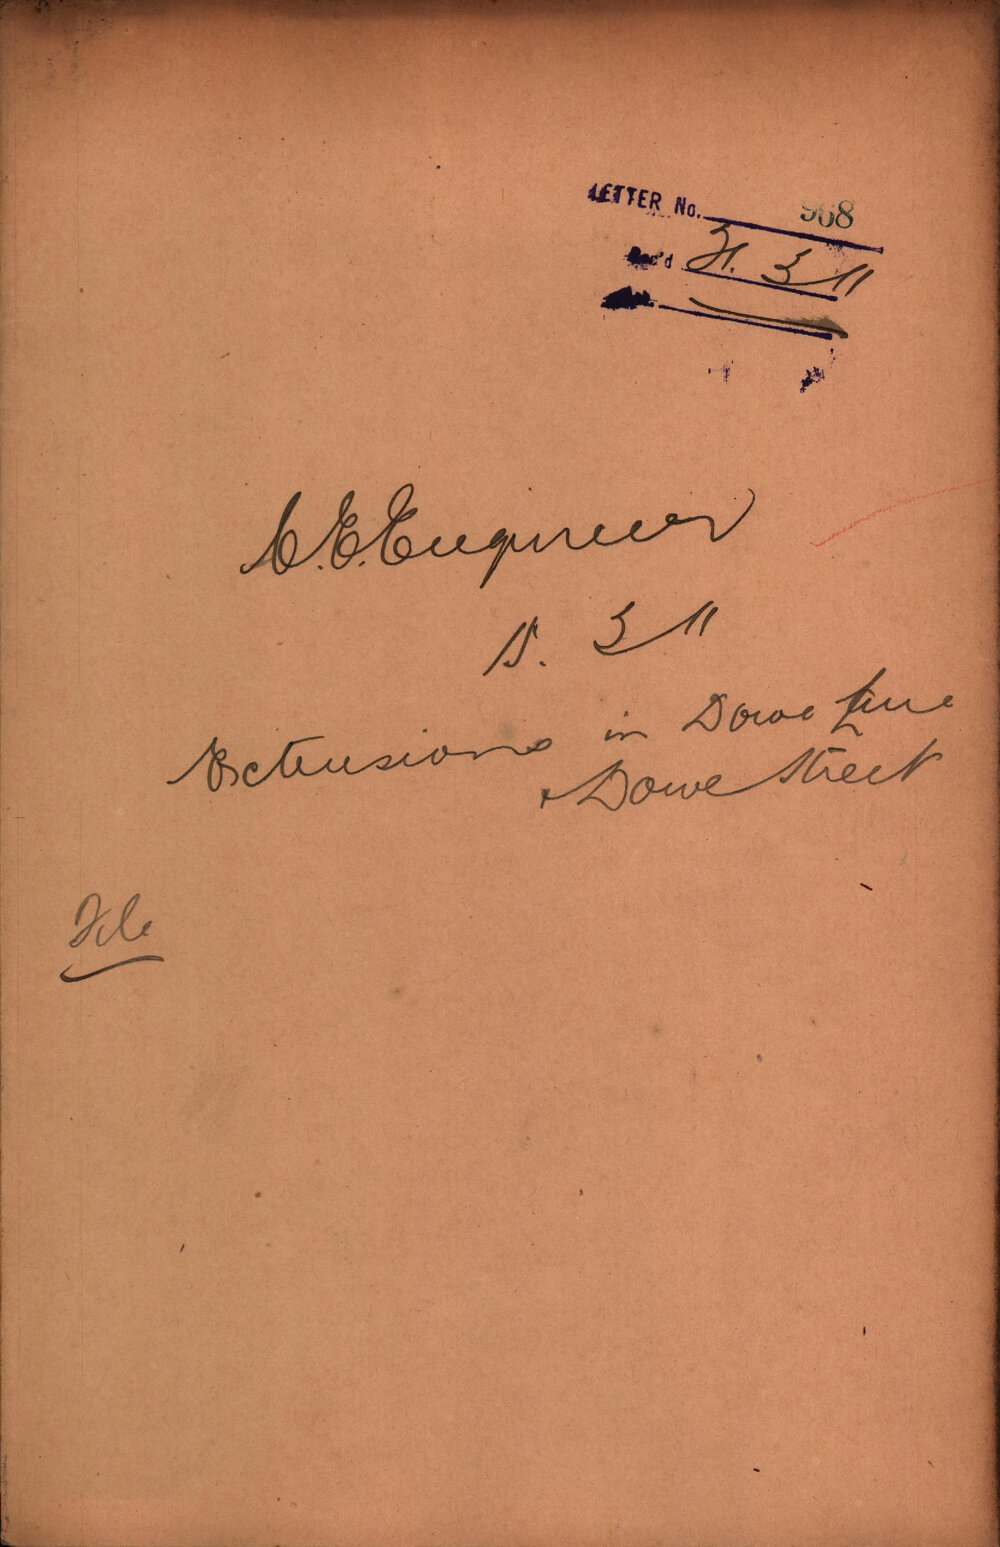 LETTER No. 968
Rec'd 21. 3 11
C.E.Engineer
15. 3 11
Extensions in Dowe Lane
& Dowe Street
File